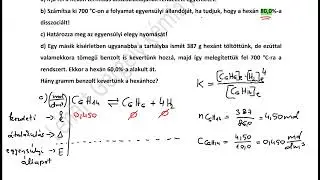 b) Számítsa ki 700 °C-on a folyamat egyensúlyi állandóját, ha tudjuk, hogy a hexán 80,0%-a
disszociált!
c) Határozza meg az egyensúlyi elegy nyomását!
d) Egy másik kísérletben ugyanabba a tartályba ismét 387 g hexánt töltöttünk, de ezúttal
valamekkora tömegű benzolt is kevertünk hozzá, majd így melegítettük fel 700 °C-ra a
rendszert. Ekkor a hexán 60,0%-a alakult át.
Hány gramm benzolt kevertünk a hexánhoz?
K = [C₆H₆]ₑ·[H₂]ₑ⁴ / [C₆H₁₄]ₑ
a) (mol/dm³) C₆H₁₄ ⇌ C₆H₆ + 4H₂
kezdeti 0,450 ∅ ∅
átalakulás
egyensúlyi E
állapot
n C₆H₁₄ = 387/86,0 = 4,50 mol
C C₆H₁₄ = 4,50/10,0 = 0,450 mol/dm³